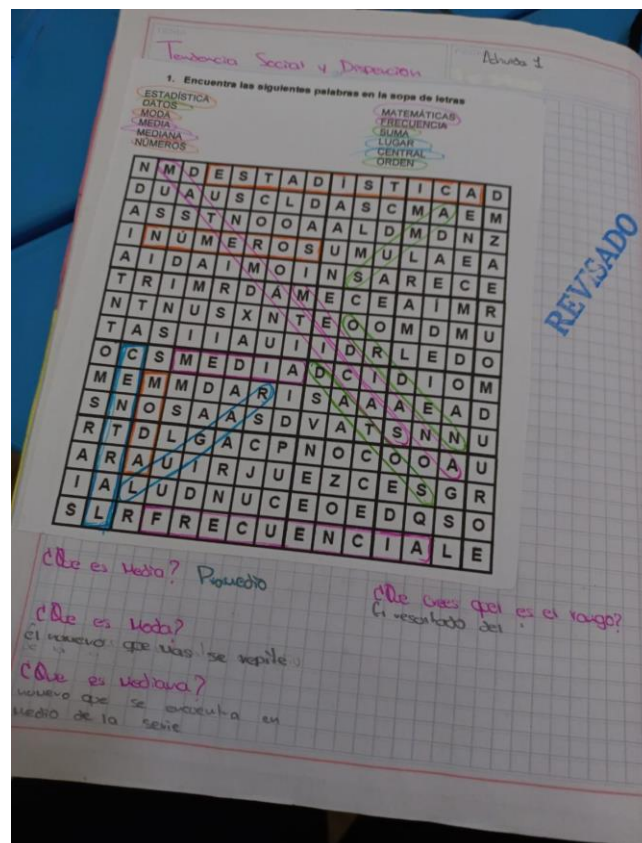 Tendencia Social y Dispersión
Actividad 1
1. Encuentra las siguientes palabras en la sopa de letras
ESTADÍSTICA
DATOS
MODA
MEDIA
MEDIANA
NÚMEROS
MATEMÁTICAS
FRECUENCIA
SUMA
LUGAR
CENTRAL
ORDEN
N M D E S T A D Í S T I C A D
D U A U S C L D A S C M A E M
A S S T N O O A A L D M D N Z
I N Ú M E R O S U M U L A E A
A I D A I M O I N S A R E C E
T R I M R D Á M E C E A Í M R
N T N U S X N T E O O M D M U
T A S I I A U I I D R L E D O
O C S M E D I A D C I D I O M
M E M M D A R I S A A A E A D
S N O S A A S D V A T S N N U
R T D L G A C P N O C O O A U
A R A U I R J U E Z C E S G R
I A L U D N U C E O E D Q S O
S L R F R E C U E N C I A L E
REVISADO
¿Que es Media? Promedio
¿Que crees que es el rango?
El resultado del
¿Que es Moda?
El numero que mas se repite
¿Que es Mediana?
numero que se encuentra en
medio de la serie